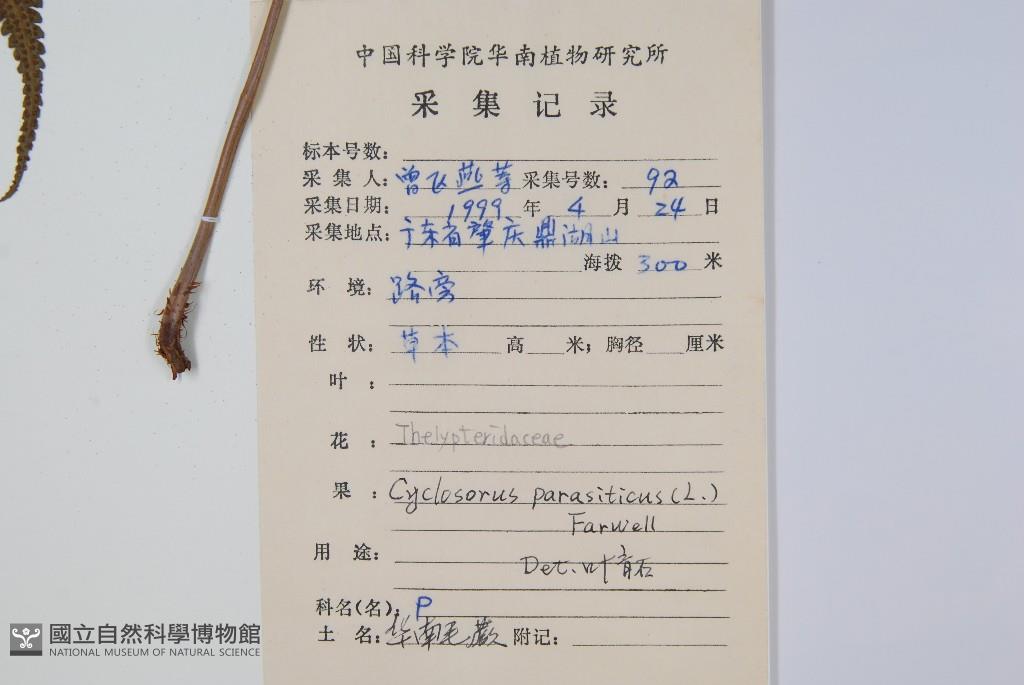 中国科学院华南植物研究所
采集记录
标本号数:
采集人: 曾飞燕等 采集号数: 92
采集日期: 1999 年 4 月 24 日
采集地点: 广东省肇庆鼎湖山
海拨 300 米
环境: 路旁
性状: 草本 高 米; 胸径 厘米
叶:
花: Thelypteridaceae
果: Cyclosorus parasiticus (L.)
Farwell
用途:
Det. 叶育石
科名(名): P
土名: 华南毛蕨 附记:
國立自然科學博物館
NATIONAL MUSEUM OF NATURAL SCIENCE